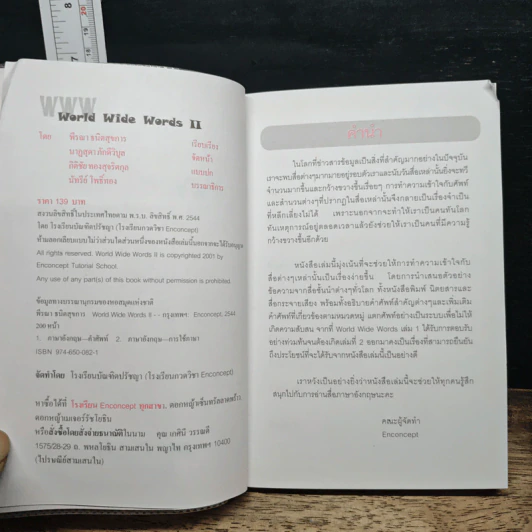 WWW
World Wide Words II
โดย พีรฌา ธนัยสุขการ เรียบเรียง
นาฏสุดา ภักดีวิบูล จัดหน้า
ภิติชัย ทองสุจริตกุล แบบปก
มัทรีย์ โพธิ์ทอง บรรณาธิการ
ราคา 139 บาท
สงวนลิขสิทธิ์ในประเทศไทยตาม พ.ร.บ. ลิขสิทธิ์ พ.ศ. 2544
โดย โรงเรียนบัณฑิตปรัชญา (โรงเรียนกวดวิชา Enconcept)
All rights reserved. World Wide Words II is copyrighted 2001 by
Enconcept Tutorial School.
Any use of any part(s) of this book without permission is prohibited.
ข้อมูลทางบรรณานุกรมของหอสมุดแห่งชาติ
พีรฌา ธนัยสุขการ World Wide Words II -- กรุงเทพฯ Enconcept, 2544
200 หน้า
1. ภาษาอังกฤษ—คำศัพท์ 2. ภาษาอังกฤษ—การใช้ภาษา
ISBN 974-650-062-1
จัดทำโดย โรงเรียนบัณฑิตปรัชญา (โรงเรียนกวดวิชา Enconcept)
หาซื้อได้ที่ โรงเรียน Enconcept ทุกสาขา, ดอกหญ้าเซ็นทรัลลาดพร้าว
ดอกหญ้าเมเจอร์รัชโยธิน
หรือสั่งซื้อโดยสั่งจ่ายธนาณัติในนาม คุณ เกศินี วรรณดี
1575/28-29 ถ. พหลโยธิน สามเสนใน พญาไท กรุงเทพฯ 10400
(ไปรษณีย์สามเสนใน)
คำนำ
ในโลกที่ข่าวสารข้อมูลเป็นสิ่งที่สำคัญมากอย่างในปัจจุบัน
เราจะพบสื่อต่างๆมากมายอยู่รอบตัวเราและนับวันสื่อเหล่านั้นยิ่งจะทวี
จำนวนมากขึ้นและกว้างขวางขึ้นเรื่อยๆ การทำความเข้าใจกับศัพท์
และสำนวนต่างๆที่ปรากฏในสื่อเหล่านั้นจึงกลายเป็นเรื่องจำเป็น
ที่หลีกเลี่ยงไม่ได้ เพราะนอกจากจะทำให้เราเป็นคนทันโลก
ทันเหตุการณ์อยู่ตลอดเวลาแล้วยังช่วยให้เราเป็นคนที่มีความรู้
กว้างขวางขึ้นอีกด้วย
หนังสือเล่มนี้มุ่งเน้นที่จะช่วยให้การทำความเข้าใจกับ
สื่อต่างๆเหล่านั้นเป็นเรื่องง่ายขึ้น โดยการนำเสนอตัวอย่าง
ข้อความจากสื่อชั้นนำต่างๆทั่วโลก ทั้งหนังสือพิมพ์ นิตยสารและ
สื่อกระจายเสียง พร้อมทั้งอธิบายคำศัพท์สำคัญต่างๆและเพิ่มเติม
คำศัพท์ที่เกี่ยวข้องตามหมวดหมู่ แตกศัพท์อย่างเป็นระบบเพื่อไม่ให้
เกิดความสับสน จากที่ World Wide Words เล่ม 1 ได้รับการตอบรับ
อย่างท่วมท้นจนต้องเกิดเล่มที่ 2 ออกมาคงเป็นเรื่องที่สามารถยืนยัน
ถึงประโยชน์ที่จะได้รับจากหนังสือเล่มนี้เป็นอย่างดี
เราหวังเป็นอย่างยิ่งว่าหนังสือเล่มนี้จะช่วยให้ทุกคนรู้สึก
สนุกไปกับการอ่านสื่อภาษาอังกฤษนะคะ
คณะผู้จัดทำ
Enconcept